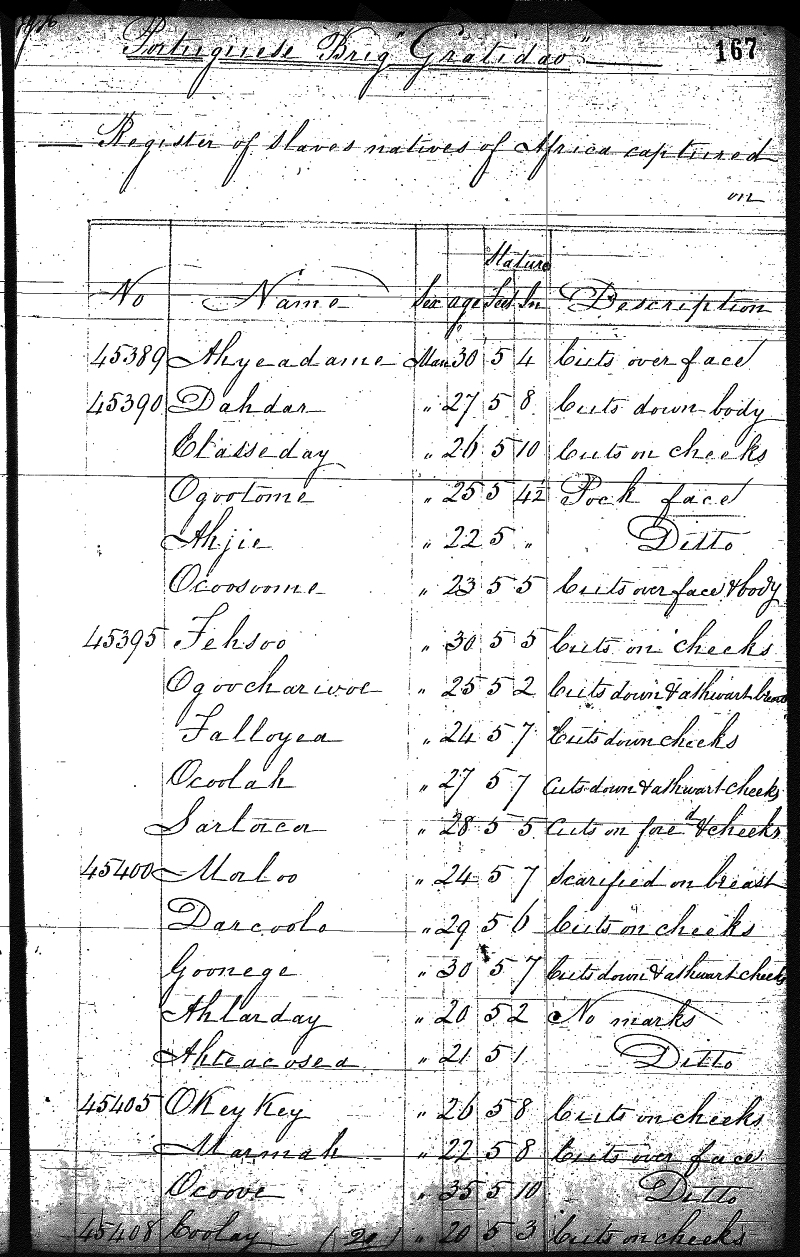 Portuguese Brig "Gratidao"
167
Register of Slaves natives of Africa captured
on
Stature
No Name Sex age Feet In Description
45389 Ahyeadame Man 30 5 4 Cuts over face
45390 Dahdar " 27 5 8 Cuts down body
Elasseday " 26 5 10 Cuts on cheeks
Ogootome " 25 5 4½ Pock face
Ahjie " 22 5 " Ditto
Ocoosoome " 23 5 5 Cuts over face & body
45395 Fehsoo " 30 5 5 Cuts on cheeks
Ogoocharwoe " 25 5 2 Cuts down & athwart breast
Falloyea " 24 5 7 Cuts down cheeks
Ocoolah " 27 5 7 Cuts down & athwart cheeks
Sarlocor " 28 5 5 Cuts on fored & cheeks
45400 Morloo " 24 5 7 Scarified on breast
Darcoolo " 29 5 6 Cuts on cheeks
Goonege " 30 5 7 Cuts down & athwart cheeks
Ahlarday " 20 5 2 No marks
Ahteacosea " 21 5 1 Ditto
45405 OKeyKey " 26 5 8 Cuts on cheeks
Marmah " 22 5 8 Cuts over face
Ocoove " 35 5 10 Ditto
45408 Coolay (20) " 20 5 3 Cuts on cheeks